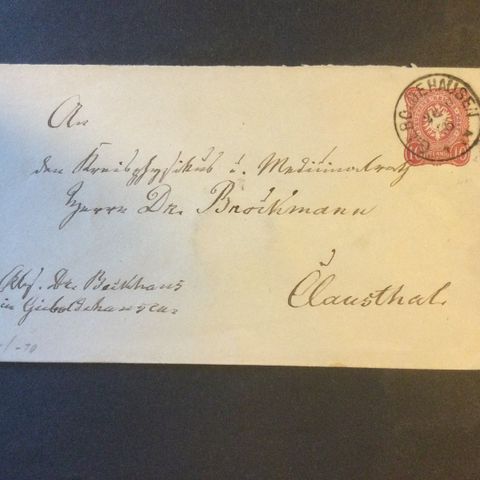 An
den Kreisphysikus u. Medicinalrath
Herrn Dr. Brockmann
Clausthal.
Abs. Dr. Backhaus
in Gieboldehausen.